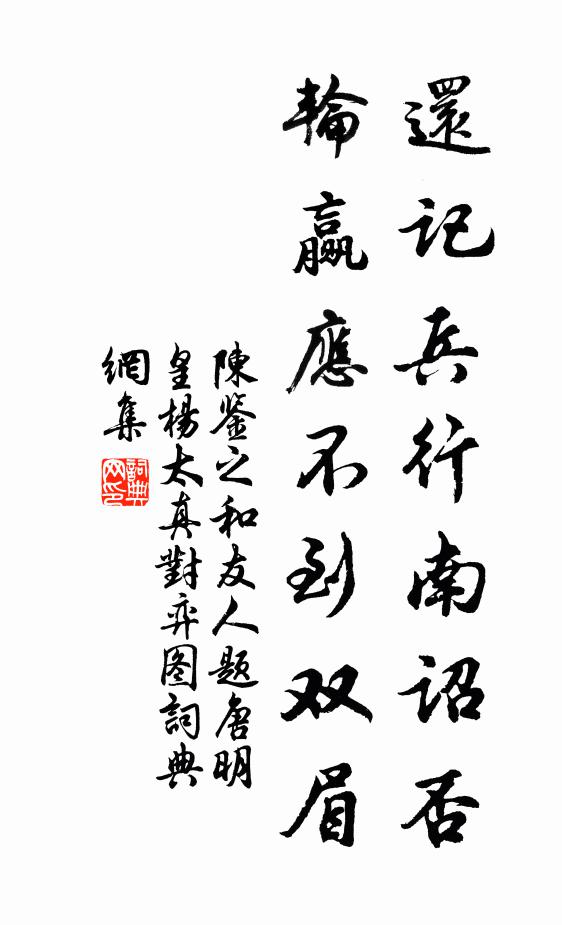 還記兵行南詔否
輪贏應不到双眉
陳鉴之和友人题唐明
皇楊太真對弈图詞典
網集
詞典
网印